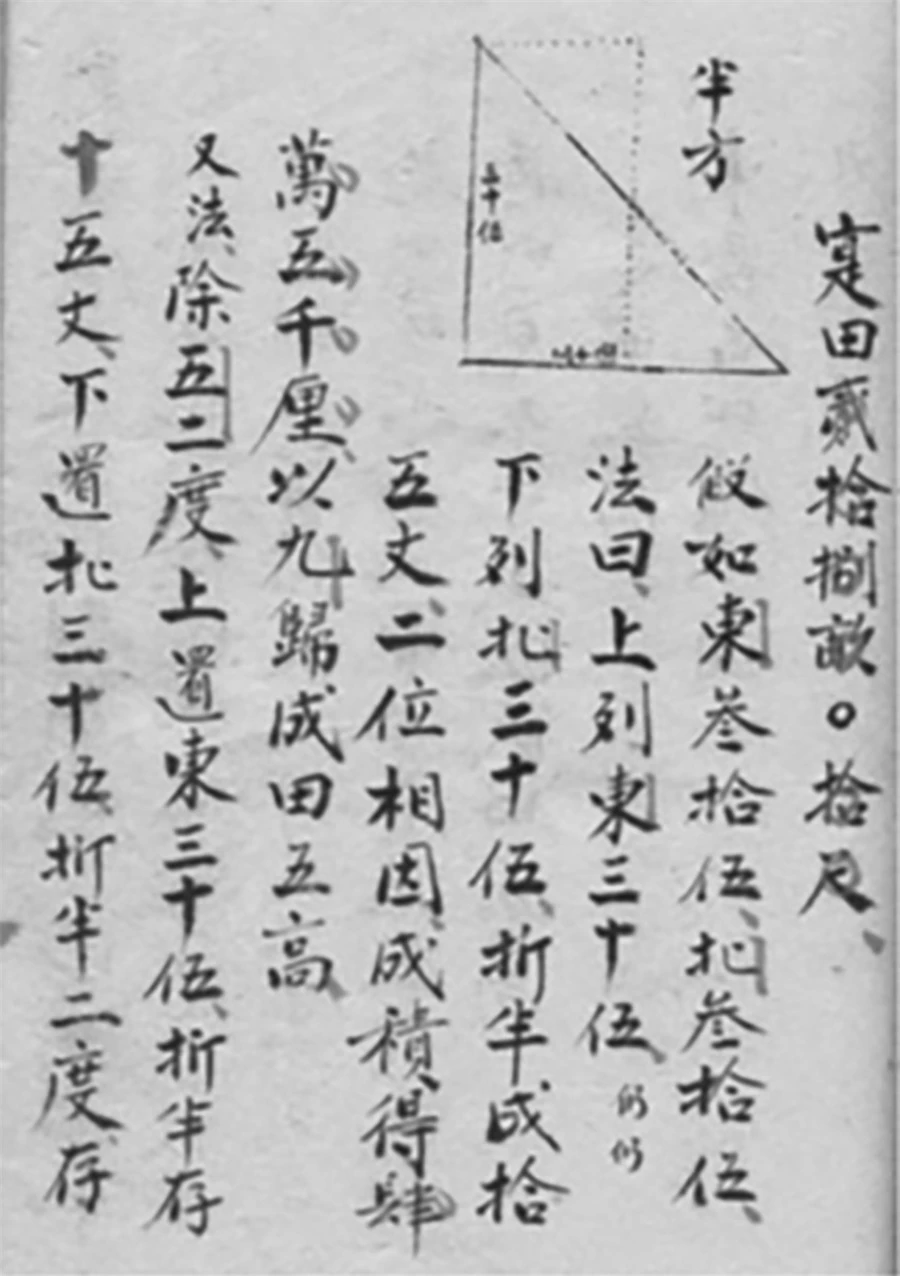 寔田貳拾捌畝〇拾尺
半方
假如東叄拾伍北叄拾伍
法曰上列東三十伍仍仍
下列北三十伍折半成拾
五丈二位相因成積得肆
萬五千厘以九歸成田五高
又法除五二度上置東三十伍折半存
十五丈下置北三十伍折半二度存